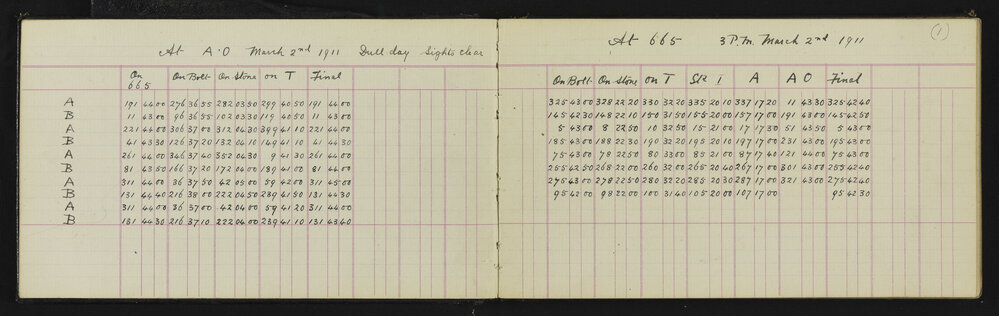 At A.O March 2nd 1911 Dull day Sights clear
On 665 On Bolt On Stone on T Final
A 191 44 00 276 36 55 282 03 50 299 40 50 191 44 00
B 11 43 00 96 36 55 102 03 30 119 40 50 11 43 00
A 221 44 00 306 37 00 312 04 30 221 44 00
B 41 43 30 126 37 20 132 04 10 149 41 10 41 44 30
A 261 44 00 346 37 40 352 04 30 9 41 30 261 44 00
B 81 43 50 166 37 20 172 04 00 189 41 00 81 44 00
A 311 44 00 36 37 50 42 05 00 59 42 00 311 45 00
B 131 44 40 216 38 00 222 04 50 239 41 50 131 44 30
A 311 44 00 36 37 00 42 04 00 59 41 20 311 44 00
B 131 44 30 216 37 10 222 04 00 239 41 10 131 43 40
(1)
At 665 3 P.m. March 2nd 1911
On Bolt On Stone on T Stn I A A O Final
325 43 00 328 22 20 330 32 20 335 20 10 337 17 20 11 43 30 325 42 40
145 42 30 148 22 10 150 31 50 155 20 00 157 17 00 191 43 00 145 42 50
5 43 00 8 22 50 10 32 50 15 21 00 17 17 30 51 43 50 5 43 00
185 43 00 188 22 30 190 32 20 195 20 10 197 17 00 231 43 00 195 43 00
75 43 00 78 22 50 80 33 00 85 21 00 87 17 40 121 44 00 75 43 00
255 42 50 22 00 260 32 00 265 20 20 267 17 00 301 43 00 255 42 40
275 43 00 278 22 50 280 32 20 285 20 30 287 17 00 321 43 00 275 42 40
95 42 00 98 22 00 100 31 40 105 20 00 107 17 00 95 42 30